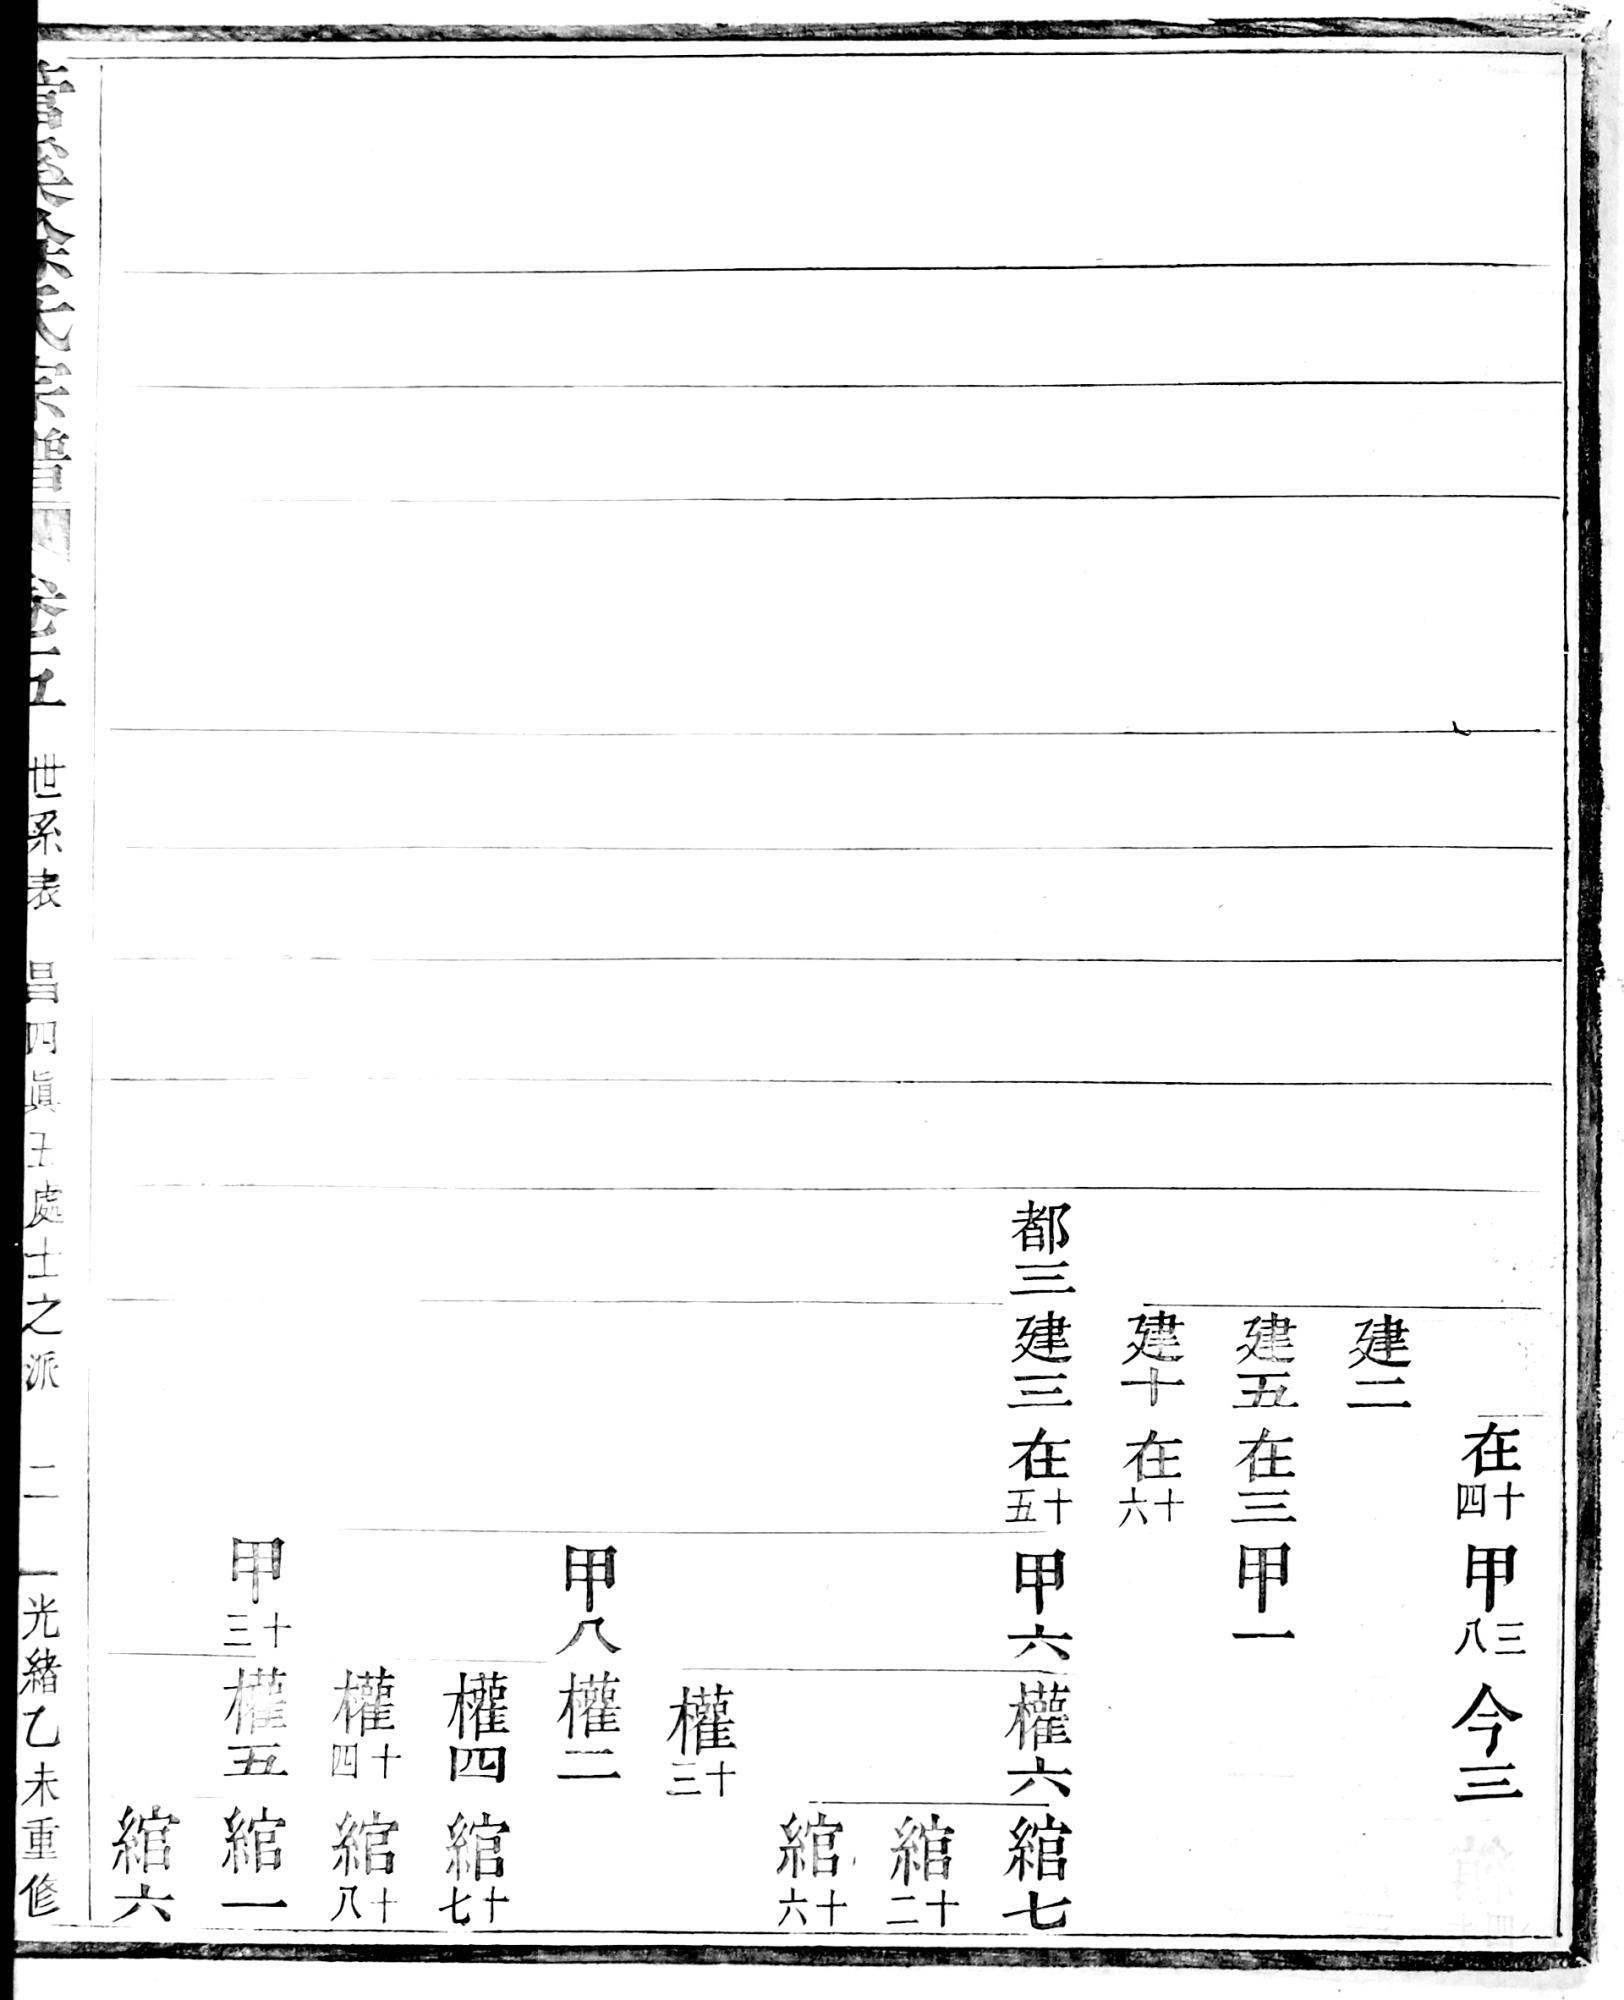 在十四 甲三八 今三
建二
建五 在三 甲一
建十 在十六
都三 建三 在十五 甲六 權六 綰七
綰十二
綰十六
權十三
甲八 權二
權四 綰十七
權十四 綰十八
甲十三 權五 綰一
綰六
管溪徐氏宗譜 卷五 世系表 昌四眞五處士之派 二 光緒乙未重修